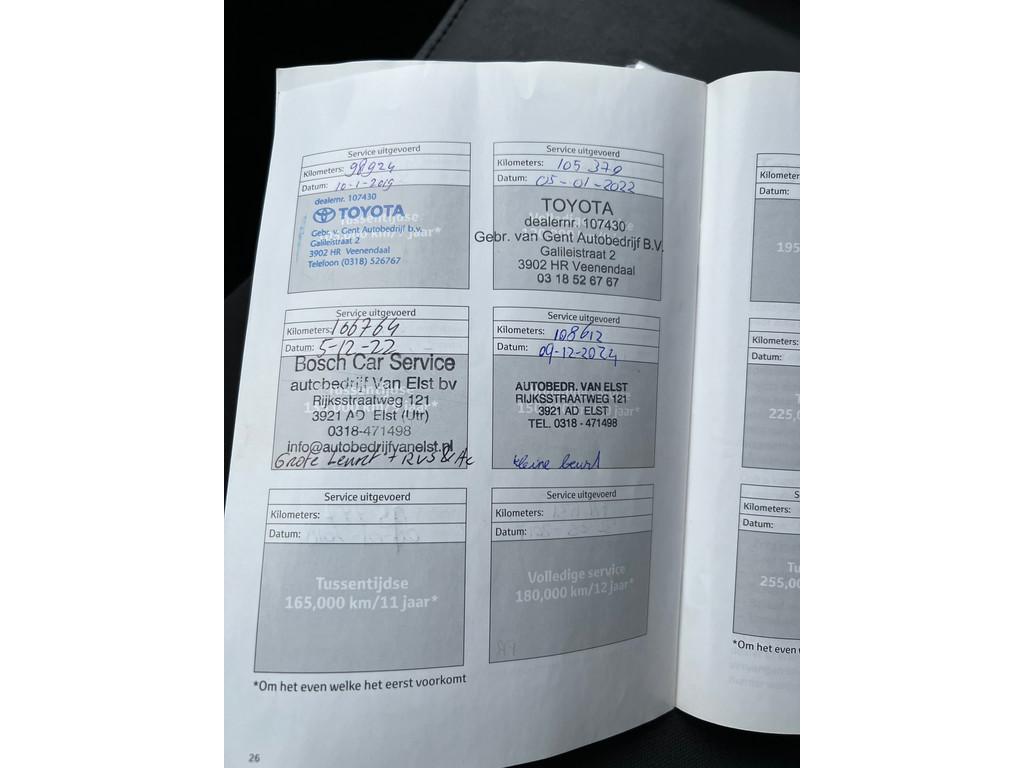 Service uitgevoerd
Kilometers: 98924
Datum: 10-1-2019
dealernr. 107430
TOYOTA
Tussentijdse
Gebr. v. Gent Autobedrijf b.v.
Galileistraat 2
3902 HR Veenendaal
Telefoon (0318) 526767
Service uitgevoerd
Kilometers: 105 370
Datum: 05-01-2022
TOYOTA
dealernr. 107430
Gebr. van Gent Autobedrijf B.V.
Galileistraat 2
3902 HR Veenendaal
03 18 52 67 67
Service uitgevoerd
Kilometers: 106764
Datum: 5-12-22
Bosch Car Service
autobedrijf Van Elst bv
Rijksstraatweg 121
3921 AD Elst (Utr)
0318-471498
info@autobedrijfvanelst.nl
Grote beurt + RVS & Ac
Service uitgevoerd
Kilometers: 108612
Datum: 09-12-2024
AUTOBEDR. VAN ELST
RIJKSSTRAATWEG 121
3921 AD ELST
TEL. 0318 - 471498
kleine beurt
Service uitgevoerd
Kilometers:
Datum:
Tussentijdse
165,000 km/11 jaar*
Service uitgevoerd
Kilometers:
Datum:
Volledige service
180,000 km/12 jaar*
*Om het even welke het eerst voorkomt
26
Kilometer
Datum:
195
Kilometers:
Datum:
225,0
S
Kilometers:
Datum:
Tu
255,00
*Om het even